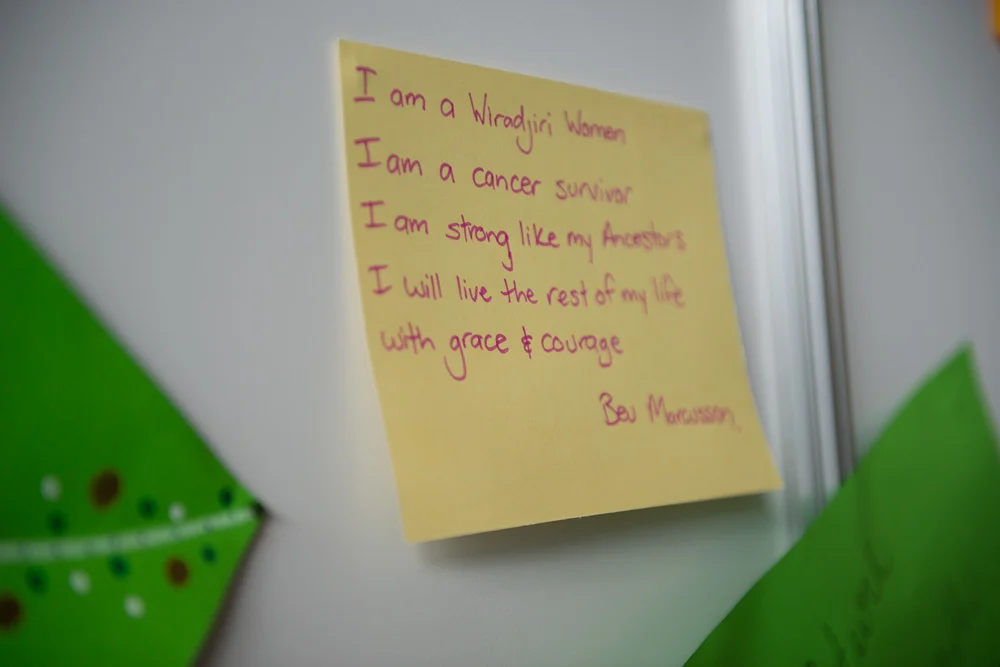 I am a Wiradjiri Women
I am a cancer survivor
I am strong like my Ancestors
I will live the rest of my life
with grace & courage
Bev Marcusson